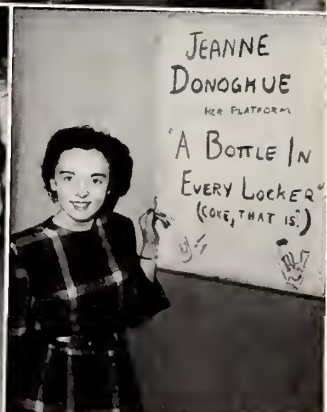 JEANNE
DONOGHUE
HER PLATFORM
"A BOTTLE IN
EVERY LOCKER"
(COKE, THAT IS.)